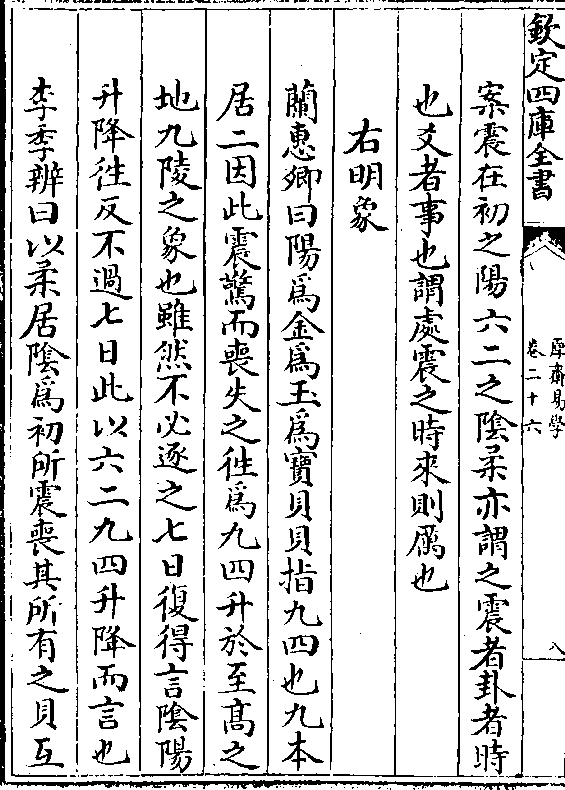 欽定四庫全書
厚齋易學
卷二十六
八
案震在初之陽六二之陰柔亦謂之震者卦者時
也爻者事也謂處震之時來則厲也
右明象
蘭惠卿曰陽為金為玉為寶貝貝指九四也九本
居二因此震驚而喪失之徃為九四升於至髙之
地九陵之象也雖然不必逐之七日復得言陰陽
升降徃反不過七日此以六二九四升降而言也
李季辨曰以柔居陰為初所震喪其所有之貝互